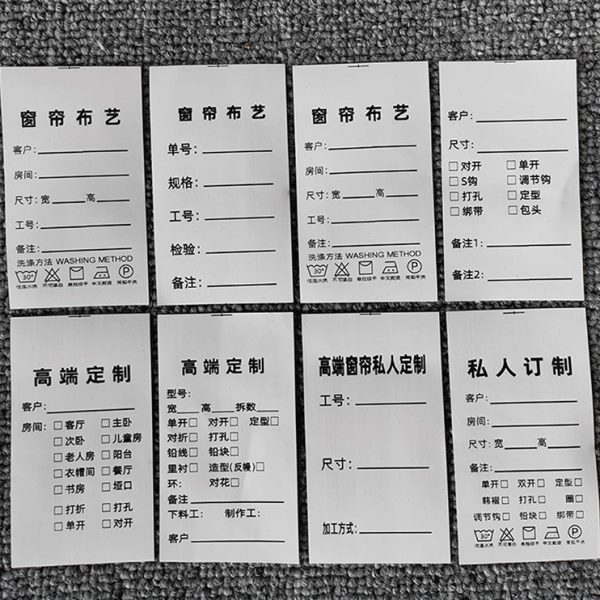 窗帘布艺
客户：
房间：
尺寸：宽 高
工号：
备注：
洗涤方法 WASHING METHOD
30°
低温水洗 不可漂白 悬挂晾干 中火熨烫 常规干洗
窗帘布艺
单号：
规格：
工号：
检验：
备注：
窗帘布艺
客户：
房间：
尺寸：宽 高
工号：
备注：
洗涤方法 WASHING METHOD
30°
低温水洗 不可漂白 悬挂晾干 中火熨烫 常规干洗
客户：
尺寸：
□对开 □单开
□S钩 □调节钩
□打孔 □定型
□绑带 □包头
备注1：
备注2：
高端定制
客户：
房间：□客厅 □主卧
□次卧 □儿童房
□老人房 □阳台
□衣帽间 □餐厅
□书房 □垭口
□打折 □打孔
□单开 □对开
高端定制
型号：
宽 高 拆数
单开□ 对开□ 定型□
对折□ 打孔□
铅线□ 铅块□
里衬□ 造型(反幔)□
环: 对花□
备注
下料工： 制作工：
客户
高端窗帘私人定制
工号：
尺寸：
加工方式：
私人订制
客户：
房间：
尺寸：宽 高
备注：
单开□ 双开□ 定型□
韩褶□ 打孔□ 圈□
调节钩□ 铅块□ 绑带□
30°
低温水洗 不可漂白 悬挂晾干 中火熨烫 常规干洗